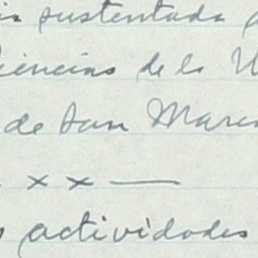 sustentada
iencias de la U
de San Marc
x x —
actividades